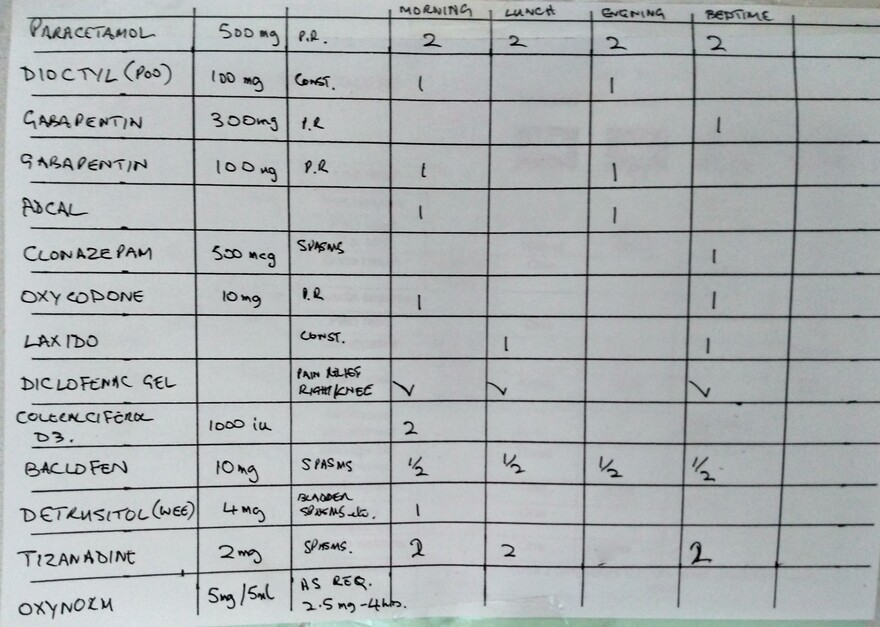 MORNING LUNCH EVENING BEDTIME
PARACETAMOL 500 mg P.R. 2 2 2 2
DIOCTYL (POO) 100 mg CONST. 1 1
GABAPENTIN 300mg P.R 1
GABAPENTIN 100 mg P.R 1 1
ADCAL 1 1
CLONAZEPAM 500 mcg SPASMS 1
OXYCODONE 10mg P.R 1 1
LAXIDO CONST. 1 1
DICLOFENAC GEL PAIN RELIEF
RIGHT/KNEE ✓ ✓ ✓
COLECALCIFEROL
D3. 1000 iu 2
BACLOFEN 10mg SPASMS 1/2 1/2 1/2 1/2
DETRUSITOL (WEE) 4mg BLADDER
SPASMS etc. 1
TIZANADINE 2mg SPASMS. 2 2 2
OXYNORM 5mg/5ml AS REQ.
2.5 mg-4hrs.